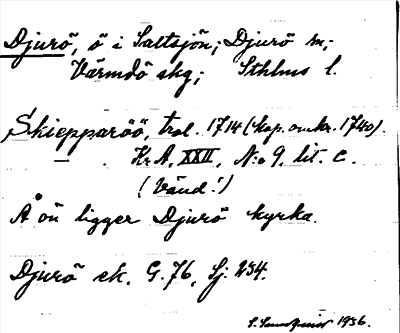 Djurö, ö i Saltsjön; Djurö sn;
Värmdö skg; Sthlms l.
Skiepparöö, trol. 1714 (kop. omkr. 1740).
— Kr. A. XXII, N:o 9. lit. c.
(Vänd!)
Å ön ligger Djurö kyrka.
Djurö ek. G. 76, Sj. 254.
1936.